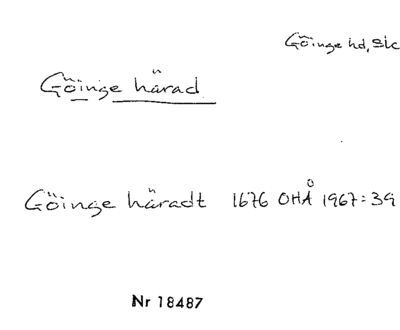 Göinge hd, Sk
Göinge härad
Göinge häradt 1676 OHÅ 1967:39
Nr 18487